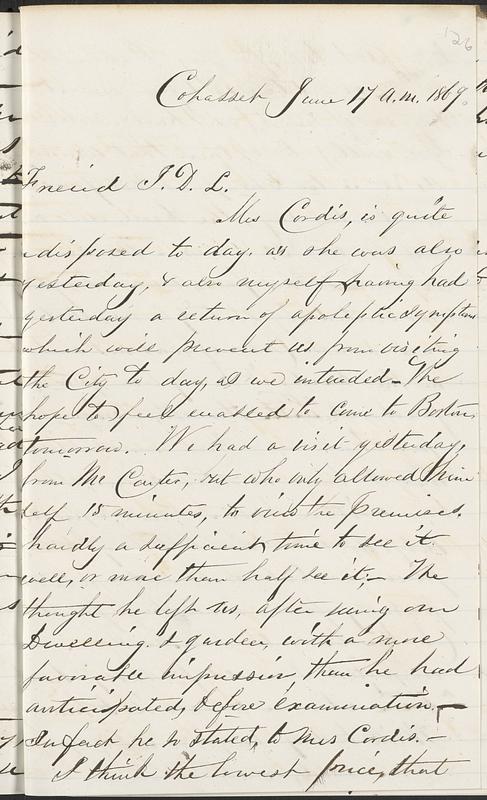 126
Cohasset June 17 a.m. 1869.
Freind J. D. L.
Mrs Cordis, is quite
indisposed to day. as she was also
yesterday, & also myself having had
yesterday a return of apoplectic symptoms
which will prevent us from visiting
the City to day, as we intended - We
hope to feel enabled to come to Boston
tomorrow. We had a visit yesterday,
from Mr Carter, but who only allowed him
self 15 minutes, to view the Premises.
hardly a sufficient time to see it
well, or more than half see it; - We
thought he left us, after seeing our
Dwelling. & garden, with a more
favorable impression, than he had
anticipated, before examination, -
In fact he so stated, to Mrs Cordis. -
I think the lowest price, that